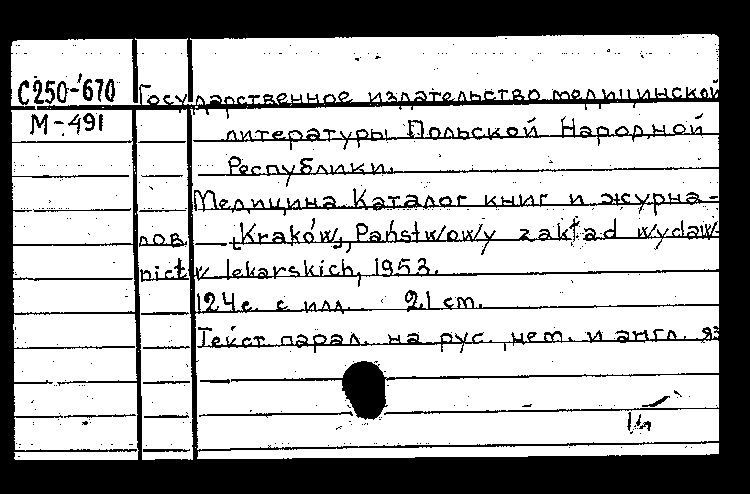 С250-670 Государственное издательство медицинской
М-491
литературы Польской Народной
Республики.
Медицина. Каталог книг и журна-
лов. [Kraków], Państwowy zakład wydaw-
nictw lekarskich, 1953.
124 с. с илл. 21 cm.
Текст парал. на рус., нем. и англ. яз